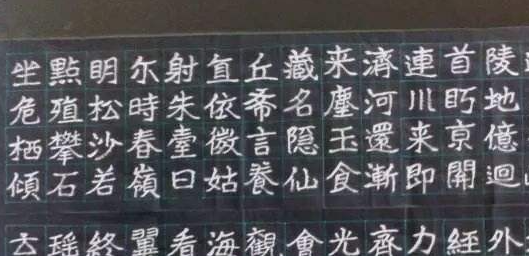 陵地億迴
首眄京關
連川来即
濟河還漸
来塵玉食
藏名隠仙
丘希言養
直依微姑
射朱臺日
尔時春嶺
明松沙若
點殖攀石
坐危栖傾
外
經
力
齊
光
會
觀
海
看
翼
終
瑶